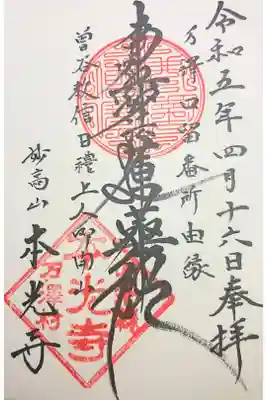 令和五年四月十六日奉拝
万沢口留番所由縁
南無妙法蓮華経
曽谷教信日禮上人御開山
妙高山 本光寺
本光寺
万澤村